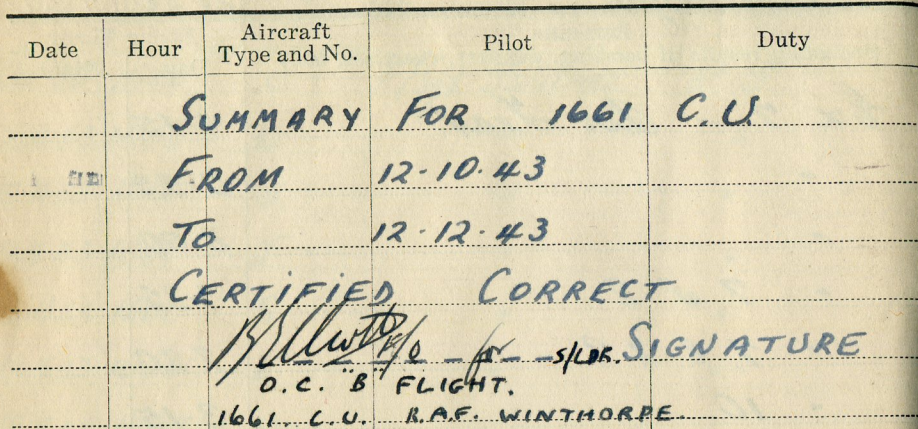 Date Hour Aircraft Type and No. Pilot Duty
SUMMARY FOR 1661 C.U.
FROM 12-10-43
TO 12-12-43
CERTIFIED CORRECT
F/O for S/LDR. SIGNATURE
O.C. "B" FLIGHT.
1661 C.U. R.A.F. WINTHORPE.